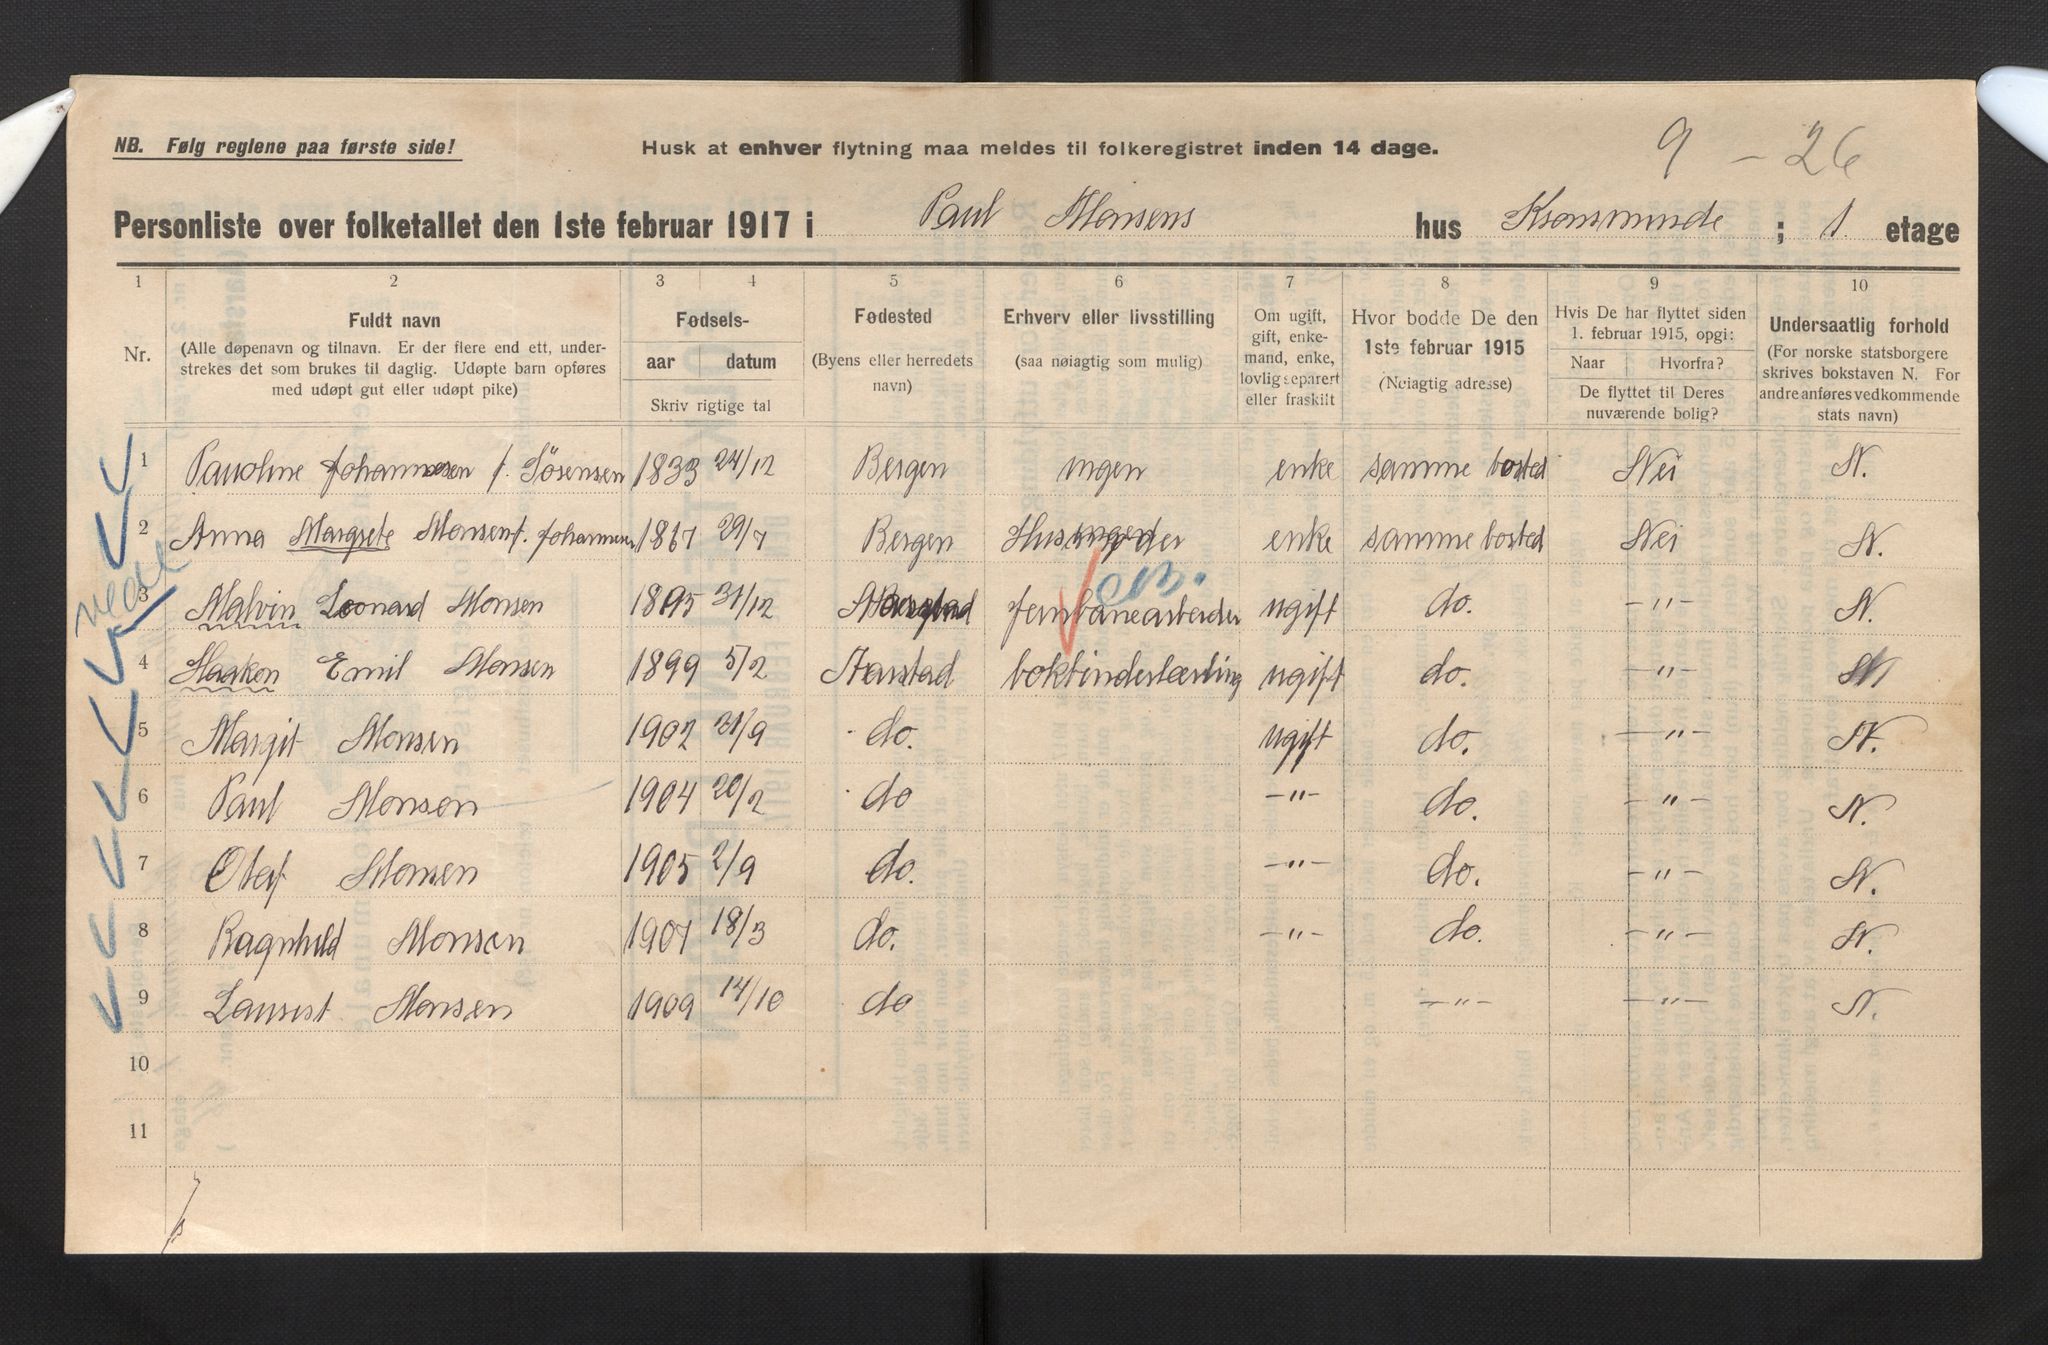 9 – 26
NB. Følg reglene paa første side! Husk at enhver flytning maa meldes til folkeregistret inden 14 dage.
Personliste over folketallet den 1ste februar 1917 i Paul Monsens hus Kronsminde ; 1 etage
1 2 3 4 5 6 7 8 9 10
Nr.
Fuldt navn
(Alle døpenavn og tilnavn. Er der flere end ett, under-
strekes det som brukes til daglig. Udøpte barn opføres
med udøpt gut eller udøpt pike)
Fødsels-
aar datum
Skriv rigtige tal
Fødested
(Byens eller herredets
navn)
Erhverv eller livsstilling
(saa nøiagtig som mulig)
Om ugift,
gift, enke-
mand, enke,
lovlig separert
eller fraskilt
Hvor bodde De den
1ste februar 1915
(Nøiagtig adresse)
Hvis De har flyttet siden
1. februar 1915, opgi:
Naar Hvorfra?
De flyttet til Deres
nuværende bolig?
Undersaatlig forhold
(For norske statsborgere
skrives bokstaven N. For
andre anføres vedkommende
stats navn)
1 Pauline Johannesen f. Sørensen 1833 24/12 Bergen ingen enke samme bosted Nei N.
2 Anna Margrete Monsen f. Johannesen 1867 29/7 Bergen enke samme bosted Nei N.
3 Malvin Leonard Monsen 1895 31/12 Aarstad jernbanearbeider ugift do. –"– N.
4 Haakon Emil Monsen 1899 5/2 Aarstad bokbinderlærling ugift do. –"– N
5 Margit Monsen 1902 21/9 do. ugift do. –"– N.
6 Paul Monsen 1904 20/2 do –"– do. –"– N.
7 Olaf Monsen 1905 2/9 do. –"– do. –"– N.
8 Ragnhild Monsen 1907 18/3 do. –"– do. –"– N.
9 Laurist Monsen 1909 14/10 do –"– –"– N.
10
11